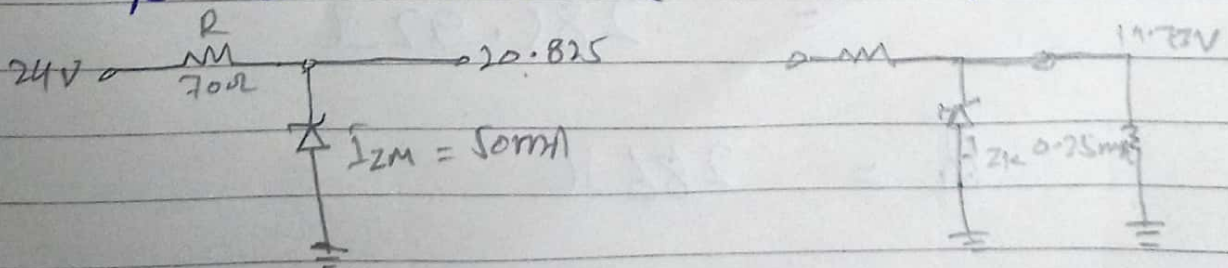 R
24V
70Ω
20.825
I_ZM = 50mA
I_ZK 0.25mA